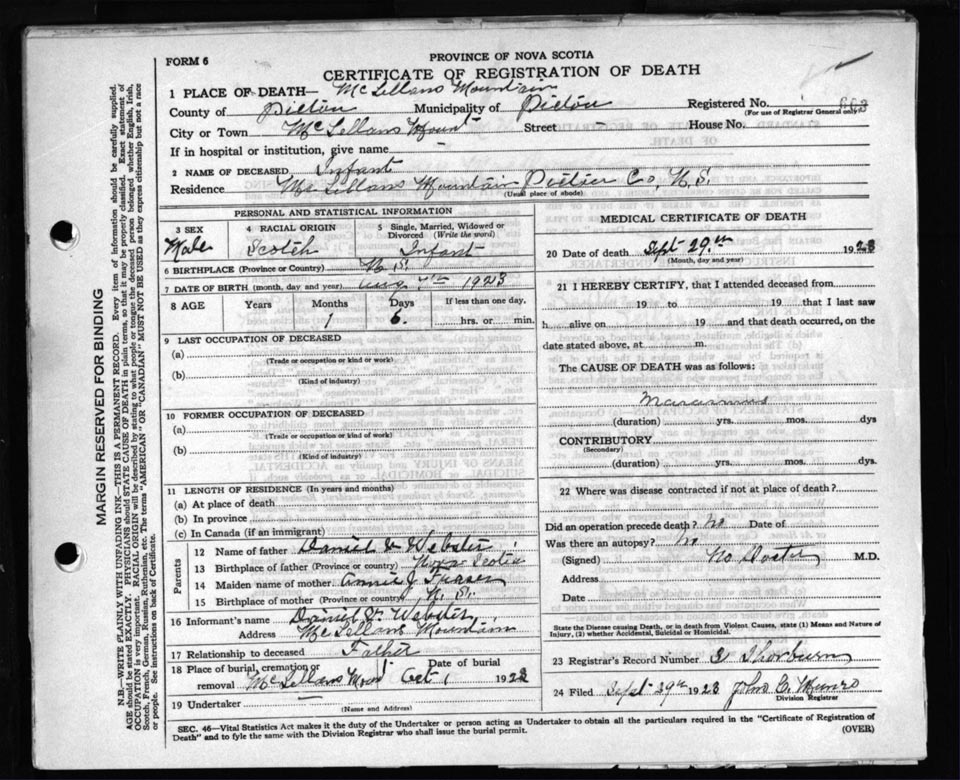 FORM 6
PROVINCE OF NOVA SCOTIA
CERTIFICATE OF REGISTRATION OF DEATH
1 PLACE OF DEATH— McLellans Mountain
County of Pictou Municipality of Pictou Registered No.
(For use of Registrar General only)
City or Town McLellans Mount Street House No.
If in hospital or institution, give name
2 NAME OF DECEASED Infant
Residence McLellans Mountain Pictou Co, N. S.
(Usual place of abode)
PERSONAL AND STATISTICAL INFORMATION
3 SEX Male
4 RACIAL ORIGIN Scotch
5 Single, Married, Widowed or Divorced (Write the word) Infant
6 BIRTHPLACE (Province or Country) N. S.
7 DATE OF BIRTH (month, day and year) Aug 7th 1923
8 AGE Years Months Days If less than one day,
1 6 hrs. or min.
9 LAST OCCUPATION OF DECEASED
(a)
(Trade or occupation or kind or work)
(b)
(Kind of industry)
10 FORMER OCCUPATION OF DECEASED
(a)
(Trade or occupation or kind or work)
(b)
(Kind of industry)
11 LENGTH OF RESIDENCE (In years and months)
(a) At place of death
(b) In province
(c) In Canada (if an immigrant)
Parents
12 Name of father Daniel Webster
13 Birthplace of father (Province or country) Nova Scotia
14 Maiden name of mother Annie J Fraser
15 Birthplace of mother (Province or country) N. S.
16 Informant's name Daniel Webster
Address McLellans Mountain
17 Relationship to deceased Father
18 Place of burial, cremation or removal McLellans Mount Date of burial Oct 1 192
19 Undertaker
(Name and Address)
MEDICAL CERTIFICATE OF DEATH
20 Date of death Sept 29th 1923
(Month, day and year)
21 I HEREBY CERTIFY, that I attended deceased from
19 to 19 that I last saw
h alive on 19 and that death occurred, on the
date stated above, at m.
The CAUSE OF DEATH was as follows:
Marasmus
(duration) yrs. mos. dys
CONTRIBUTORY
(Secondary)
(duration) yrs. mos. dys.
22 Where was disease contracted if not at place of death?
Did an operation precede death? No Date of
Was there an autopsy? No
(Signed) No Doctor M.D.
Address
Date
State the Disease causing Death, or in death from Violent Causes, state (1) Means and Nature of Injury, (2) whether Accidental, Suicidal or Homicidal.
23 Registrar's Record Number 2 Thorburn
24 Filed Sept 29th 1923 John C. Munro
Division Registrar
SEC. 46—Vital Statistics Act makes it the duty of the Undertaker or person acting as Undertaker to obtain all the particulars required in the "Certificate of Registration of
Death" and to fyle the same with the Division Registrar who shall issue the burial permit.
(OVER)
MARGIN RESERVED FOR BINDING
N.B.—WRITE PLAINLY WITH UNFADING INK—THIS IS A PERMANENT RECORD. Every item of information should be carefully supplied.
AGE should be stated EXACTLY. PHYSICIANS should STATE CAUSE OF DEATH in plain terms, so that it may be properly classified. Exact statement of
OCCUPATION is very important. RACIAL ORIGIN will be described by stating to what people or tongue the deceased person belonged whether English, Irish,
Scotch, French, German, Russian, Ruthenian, etc. The terms "AMERICAN" OR "CANADIAN" MUST NOT BE USED as they express citizenship but not a race
or people. See instructions on back of Certificate.